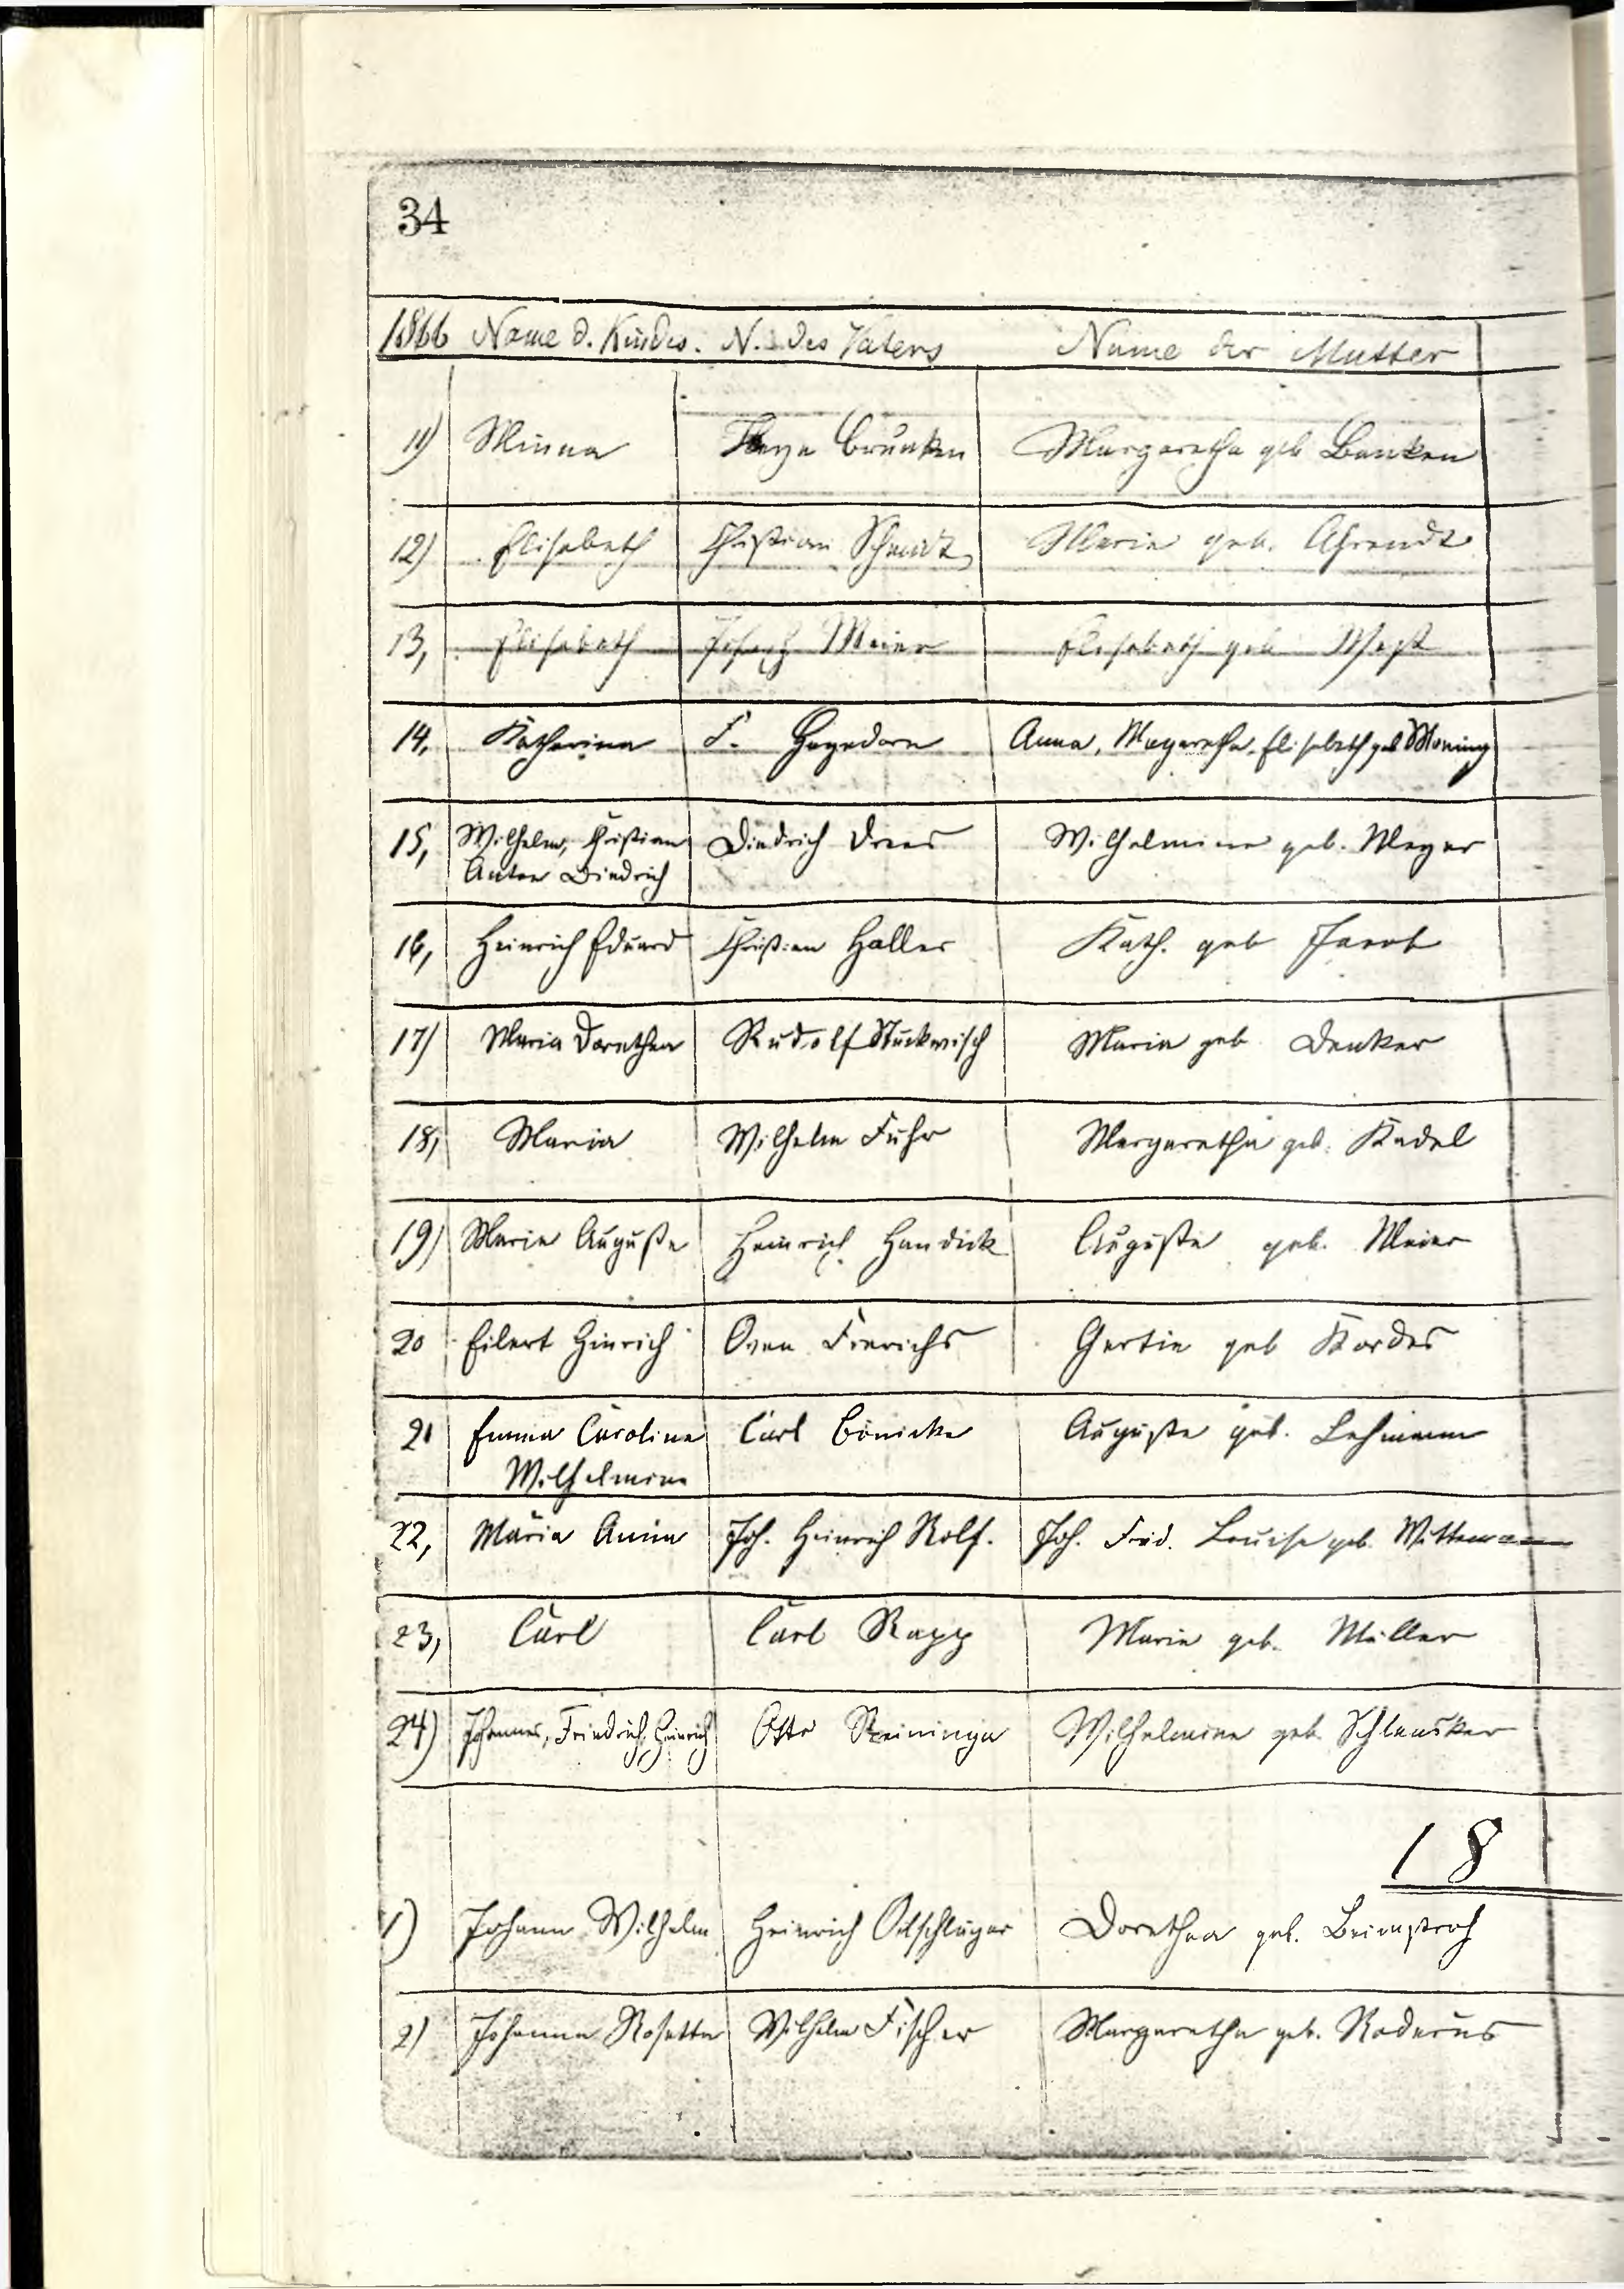 34
1866 Name d. Kindes. N. des Vaters Name der Mutter
11) Minna Brunken Margaretha geb Banken
12) Elisabeth Christian Schmidt Maria geb. Ahrendt
13, Elisabeth Joseph Meier Elisabeth geb
14, Katharina F. Hagedorn Anna, Magaretha, Elisabeth geb Moning
15, Wilhelm, Christian Diedrich Drees Wilhelmine geb. Meyer
Anton Diedrich
16, Heinrich Eduard Christian Haller Kath. geb Jacob
17) Maria Dorothea Rudolf Stuckwisch Maria geb Denker
18, Maria Wilhelm Fuhr Margaretha geb. Kadel
19) Maria Auguste Heinrich Handick Auguste geb. Meier
20 Eilert Hinrich Onen Frerichs Gertie geb Kordes
21 Emma Caroline Carl Bönicke Auguste geb. Lehmann
Wilhelmine
22, Maria Anna Joh. Heinrich Rolf. Joh. Frid. Louise geb. Wittemann
23, Carl Carl Rapp Maria geb. Müller
24) Johannes, Friedrich, Heinrich Otto Reininga Wilhelmine geb. Schlensker
18
1) Johann Wilhelm Heinrich Oelschlager Dorothea geb. Beimstroh
2) Johanna Rosetta Wilhelm Fischer Margaretha geb. Roderus